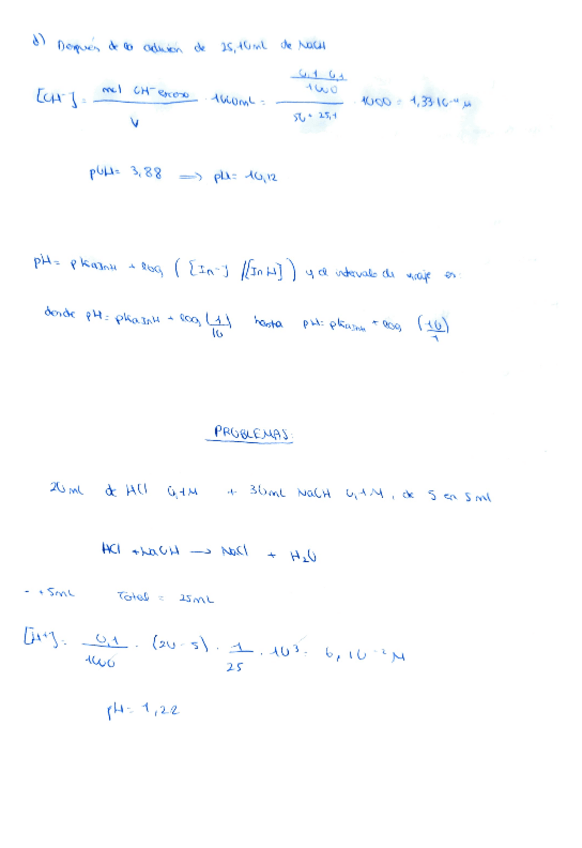 d) Después de la adición de 25,10 mL de NaOH
[OH⁻] = mol OH⁻ exceso / V · 1000 mL = (0,1 · 0,1 / 1000) / (50 + 25,1) · 1000 = 1,33·10⁻⁴ M
pOH = 3,88 ⟹ pH = 10,12
pH = pKaInH + log ([In-] / [InH]) y el intervalo de viraje es
desde pH = pKaInH + log (1/10) hasta pH = pKaInH + log (10/1)
PROBLEMAS
20 mL de HCl 0,1 M + 30 mL NaOH 0,1 M, de 5 en 5 ml
HCl + NaOH → NaCl + H₂O
- +5mL Total = 25mL
[H+] = 0,1/1000 · (20 - 5) · 1/25 · 10³ = 6,10⁻² M
pH = 1,22